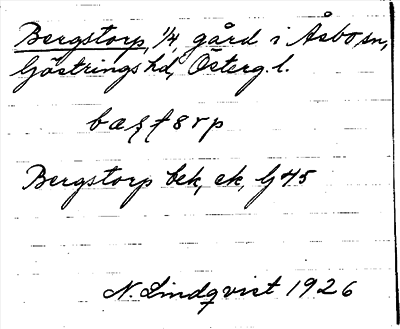 Bergstorp, 1/4, gård i Åsbo sn,
Göstrings hd, Österg. l.
Bergstorp bek, ek, G 45
N. Lindqvist 1926